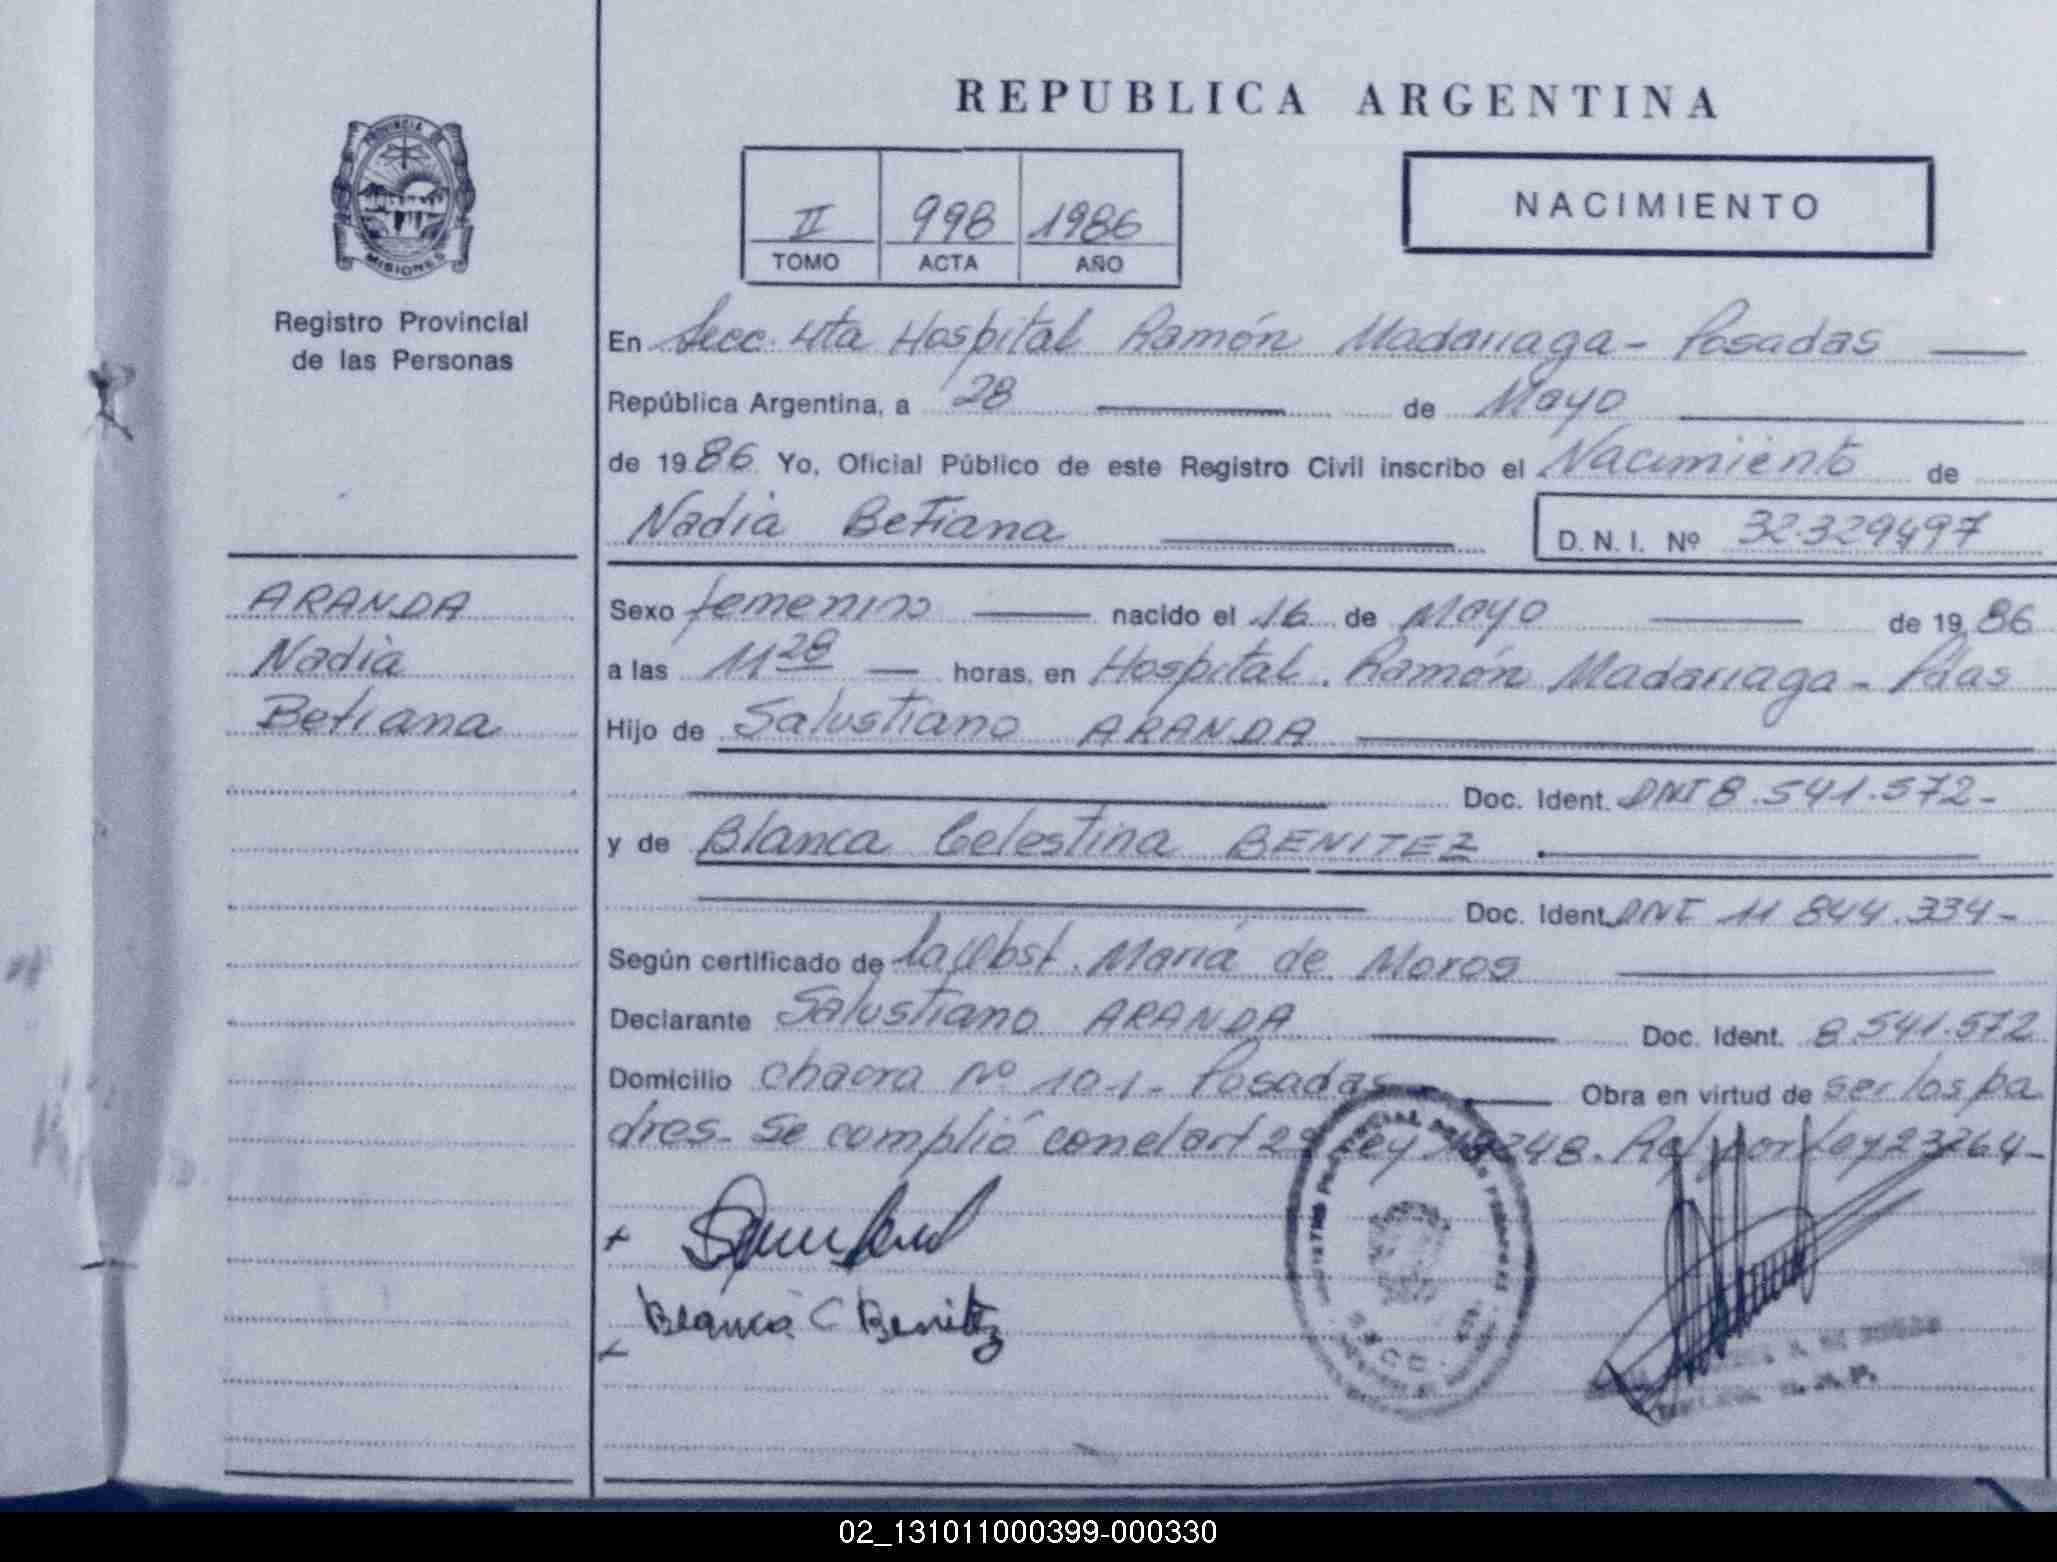 REPUBLICA ARGENTINA
PROVINCIA DE
MISIONES
Registro Provincial
de las Personas
II 998 1986
TOMO ACTA AÑO
NACIMIENTO
En Secc. 4ta Hospital Ramón Madariaga - Posadas
República Argentina, a 28 de Mayo
de 1986 Yo, Oficial Público de este Registro Civil inscribo el Nacimiento de
Nadia Betiana D. N. I. Nº 32.329497
ARANDA
Nadia
Betiana
Sexo femenino nacido el 16 de Mayo de 19 86
a las 11 28 horas, en Hospital. Ramón Madariaga - Pdas
Hijo de Salustiano ARANDA
Doc. Ident. DNI 8.541.572-
y de Blanca Celestina BENITEZ
Doc. Ident. DNI 11 844.334-
Según certificado de la Obst. María de Moros
Declarante Salustiano ARANDA Doc. Ident. 8.541.572
Domicilio chacra Nº 101- Posadas Obra en virtud de ser los pa
dres. Se complió con el art 29 Ley 18248. Ref por Ley 23264-
Blanca C Benitez
SECC.
02_131011000399-000330